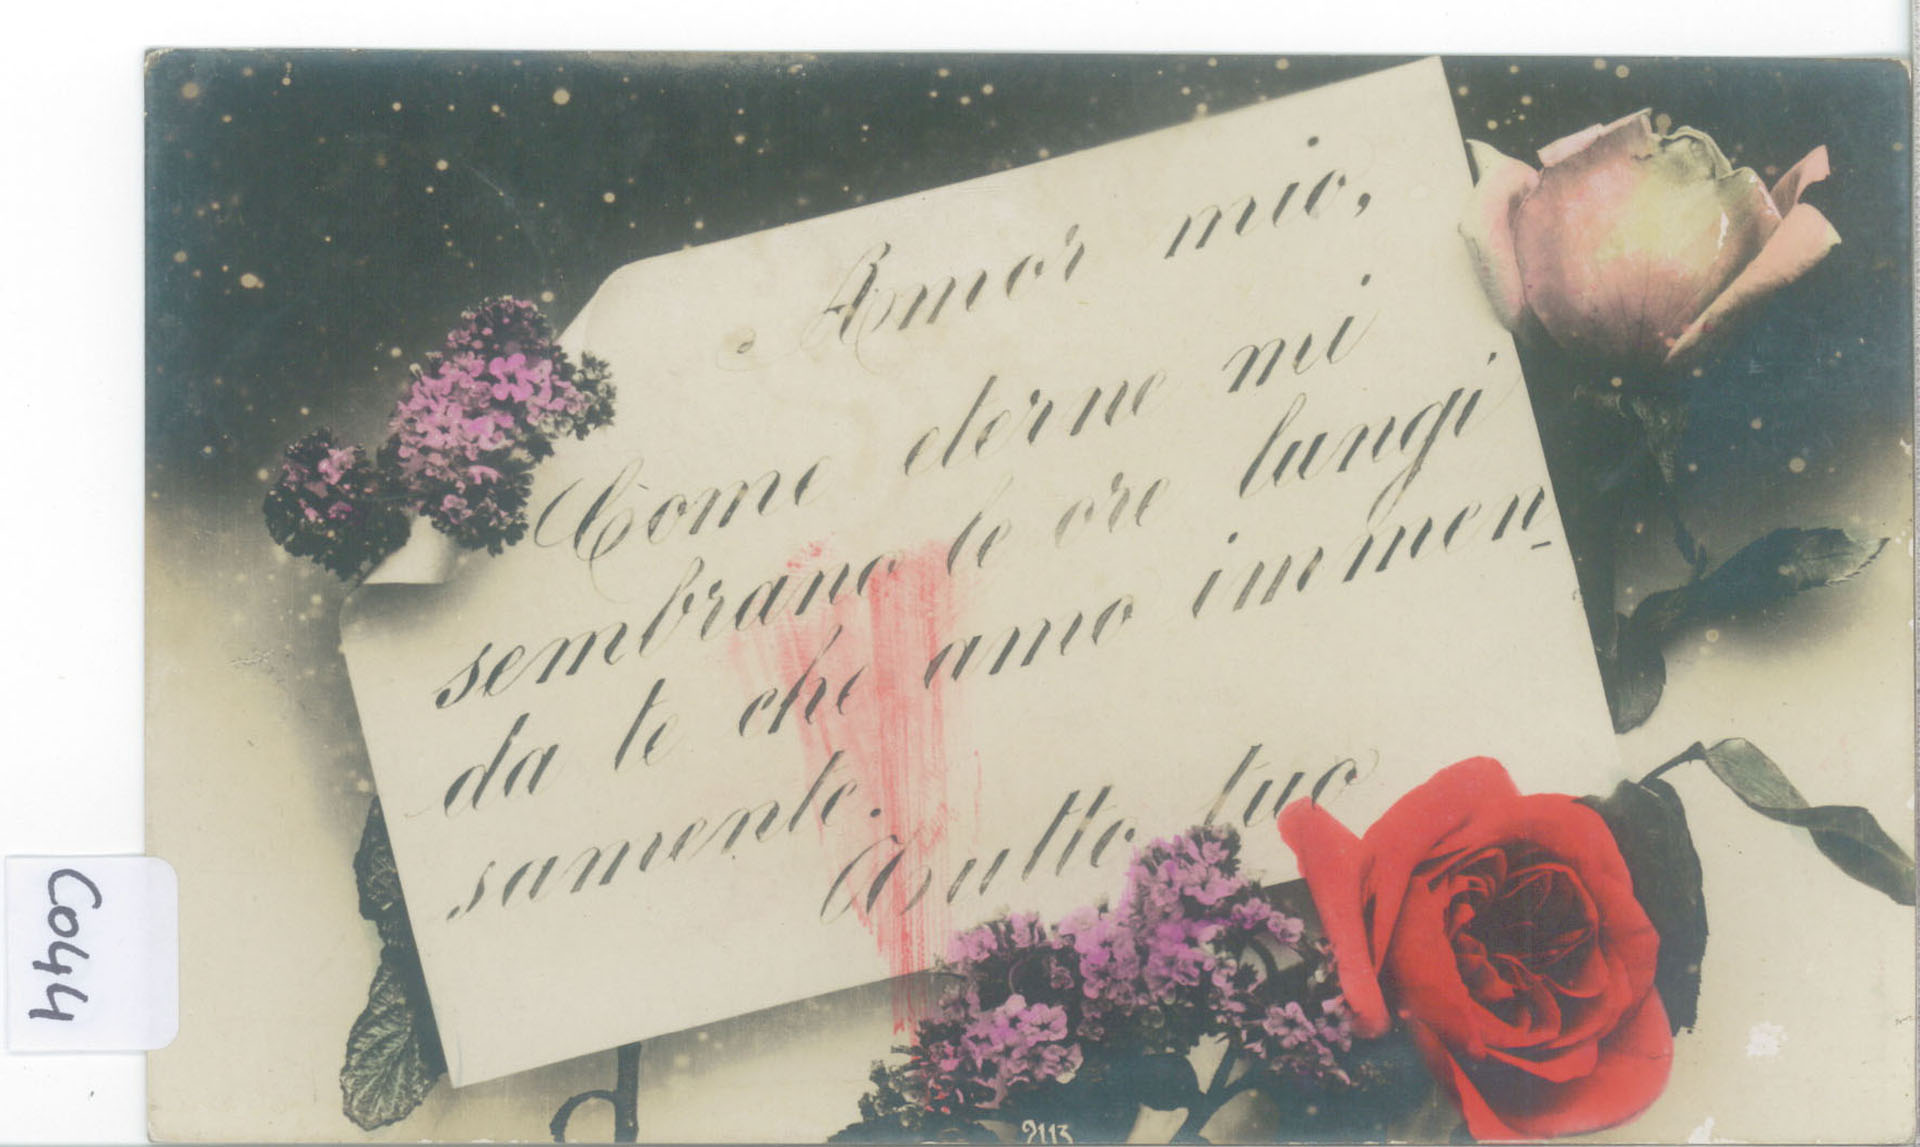 Amor mio,
Come eterne mi
sembrano le ore lungi
da te che amo immen-
samente.
Tutto tuo
C044
9113